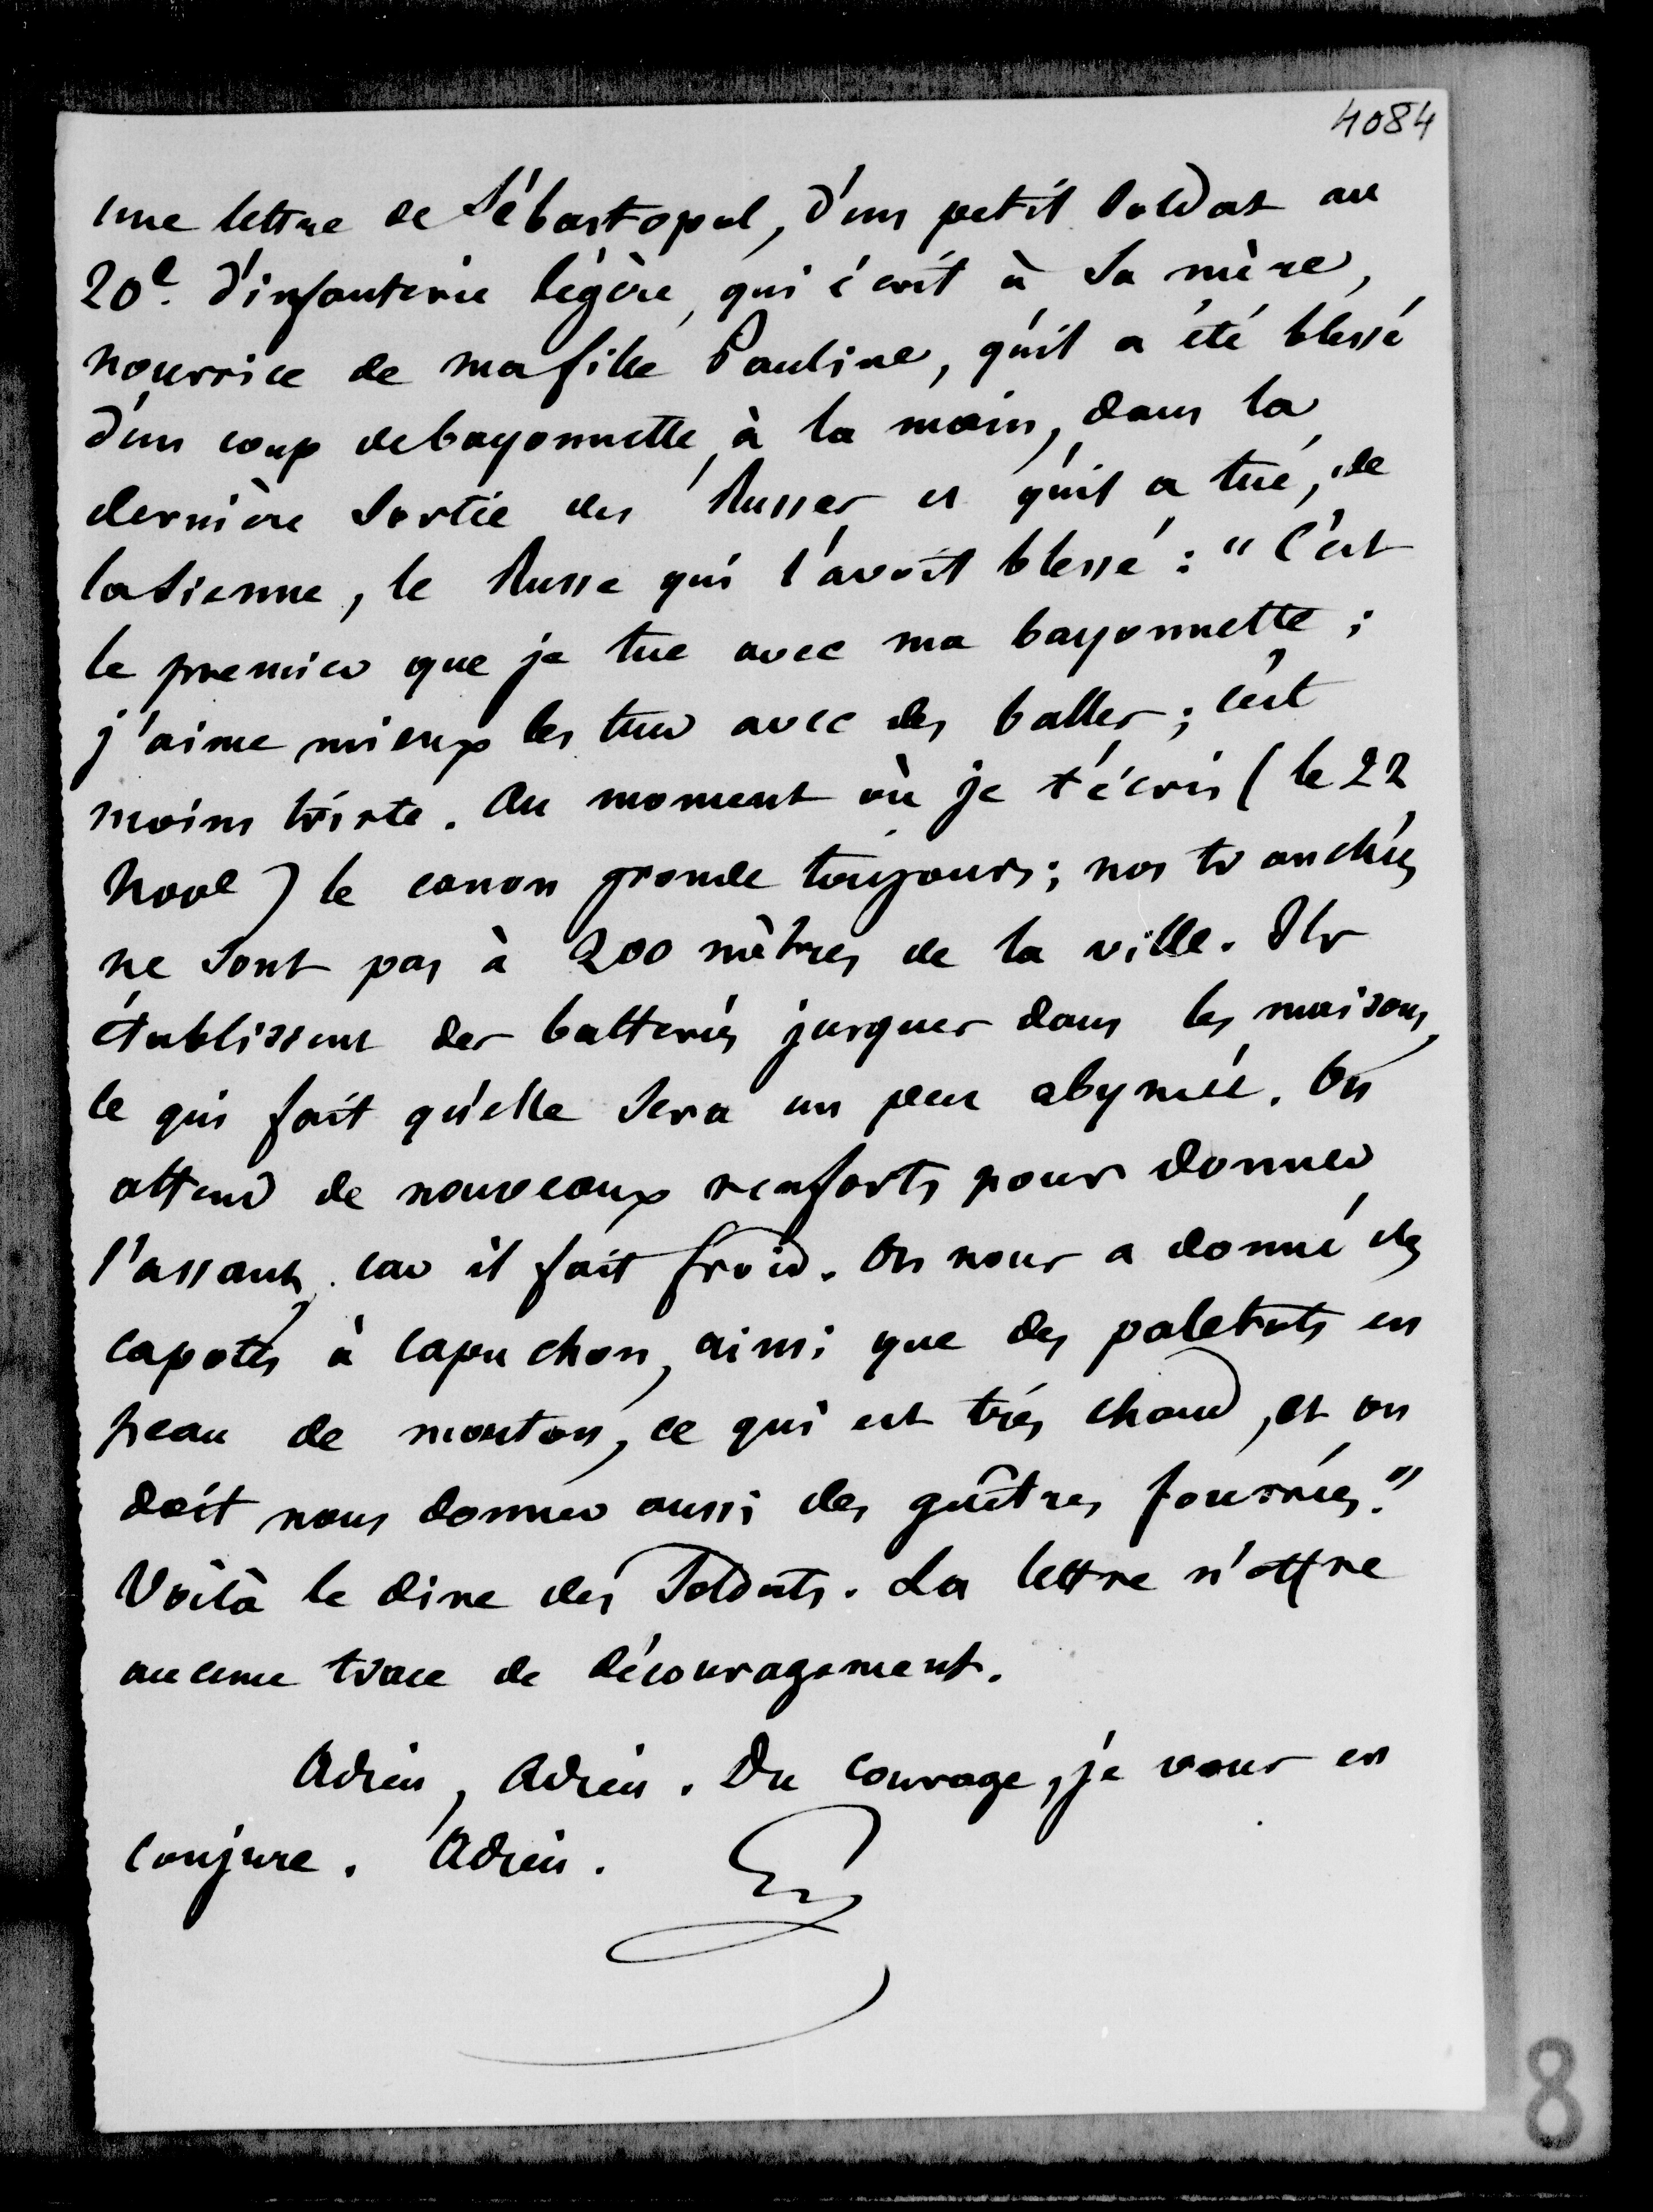 4084
une lettre de Sébastopol, d'un petit soldat au
20e. d'infanterie légère, qui écrit à sa mère,
nourrice de ma fille Pauline, qu'il a été blessé
d'un coup de bayonnette à la main, dans la
dernière sortie des Russes et qu'il a tué, de
la sienne, le Russe qui l'avait blessé : " C'est
le premier que je tue avec ma bayonnette ;
j'aime mieux les tuer avec des balles ; c'est
moins triste. Au moment où je t'écris ( le 22
nove ) le canon gronde toujours ; nos tranchées
ne sont pas à 200 mètres de la ville. Ils
établissent des batteries jusques dans les maisons,
ce qui fait qu'elle sera un peu abymée. On
attend de nouveaux renforts pour donner
l'assaut, car il fait froid. On nous a donné des
capotes à capuchon, ainsi que des paletots en
peau de mouton, ce qui est très chaud, et on
doit nous donner aussi des guêtres fourrées."
Voilà le dire des soldats. La lettre n'offre
aucune trace de découragement.
Adieu, Adieu. Du courage, je vous en
conjure. Adieu.
8